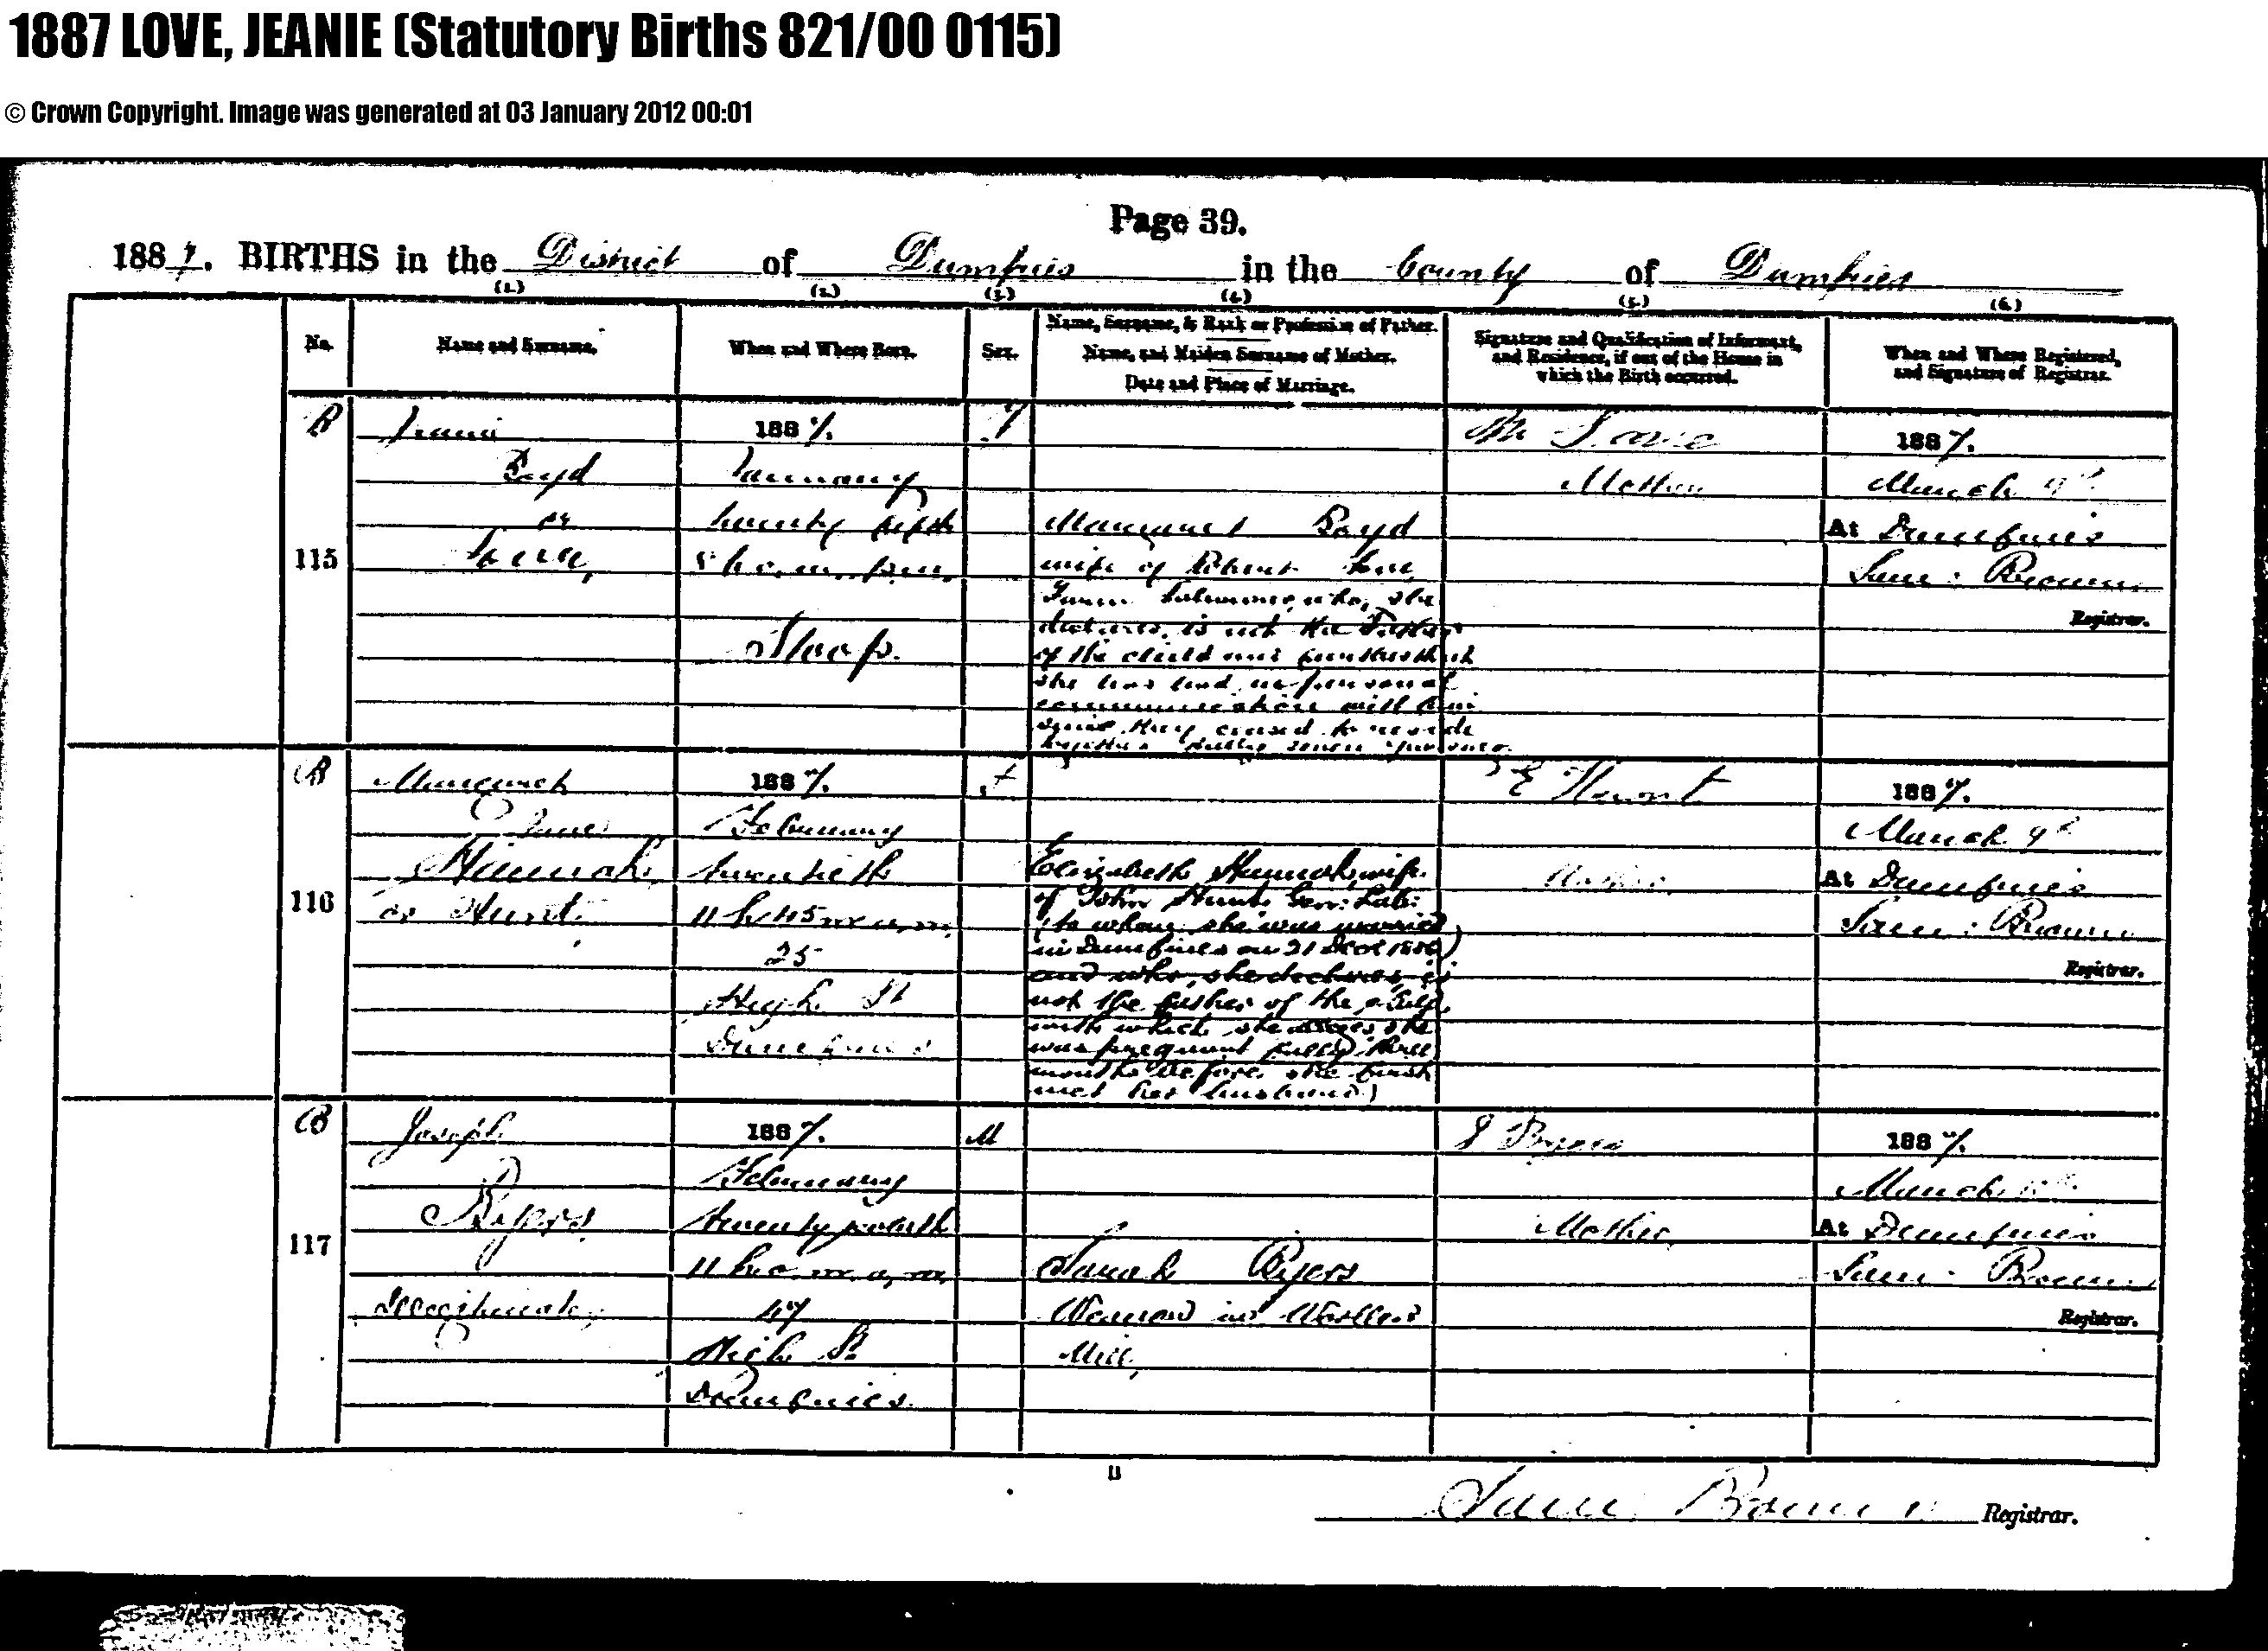 1887 LOVE, JEANIE (Statutory Births 821/00 0115)
© Crown Copyright. Image was generated at 03 January 2012 00:01
Page 39.
1887. BIRTHS in the District of Dumfries in the County of Dumfries
(1.) (2.) (3.) (4.) (5.) (6.)
No.
Name and Surname.
When and Where Born.
Sex.
Name, Surname, & Rank or Profession of Father.
Name, and Maiden Surname of Mother.
Date and Place of Marriage.
Signature and Qualification of Informant,
and Residence, if out of the House in
which the Birth occurred.
When and Where Registered,
and Signature of Registrar.
115
Jeanie
Boyd
or
Love
1887.
January
twenty fifth
Stoop.
F
Margaret Boyd
wife of Robert Love
Farm Labourer, who, she
declares, is not the Father
of the child and further that
she has had no personal
communication with him
since they ceased to reside
together fully seven years ago.
M Love
Mother
1887.
March 9th
At Dumfries
Sam: Brown
Registrar.
116
Margaret
Jane
Hannah
or Hunt
1887.
February
twentieth
11 h 45 m a.m.
25
High St
Dumfries
F
Elizabeth Hannah, wife
of John Hunt Gen: Lab:
(to whom she was married
in Dumfries on 31 Decr 1886)
and who, she declares, is
not the father of the child
with which she alleges she
was pregnant fully three
months before she first
met her husband)
E Hunt
Mother
1887.
March 9th
At Dumfries
Sam: Brown
Registrar.
117
Joseph
Byers
Illegitimate
1887.
February
twenty fourth
11 h 0 m a.m.
47
High St
Dumfries.
M
Sarah Byers
Weaver in Woollen
Mill
S Byers
Mother
1887.
March
At Dumfries
Sam: Brown
Registrar.
Sam: Brown Registrar.